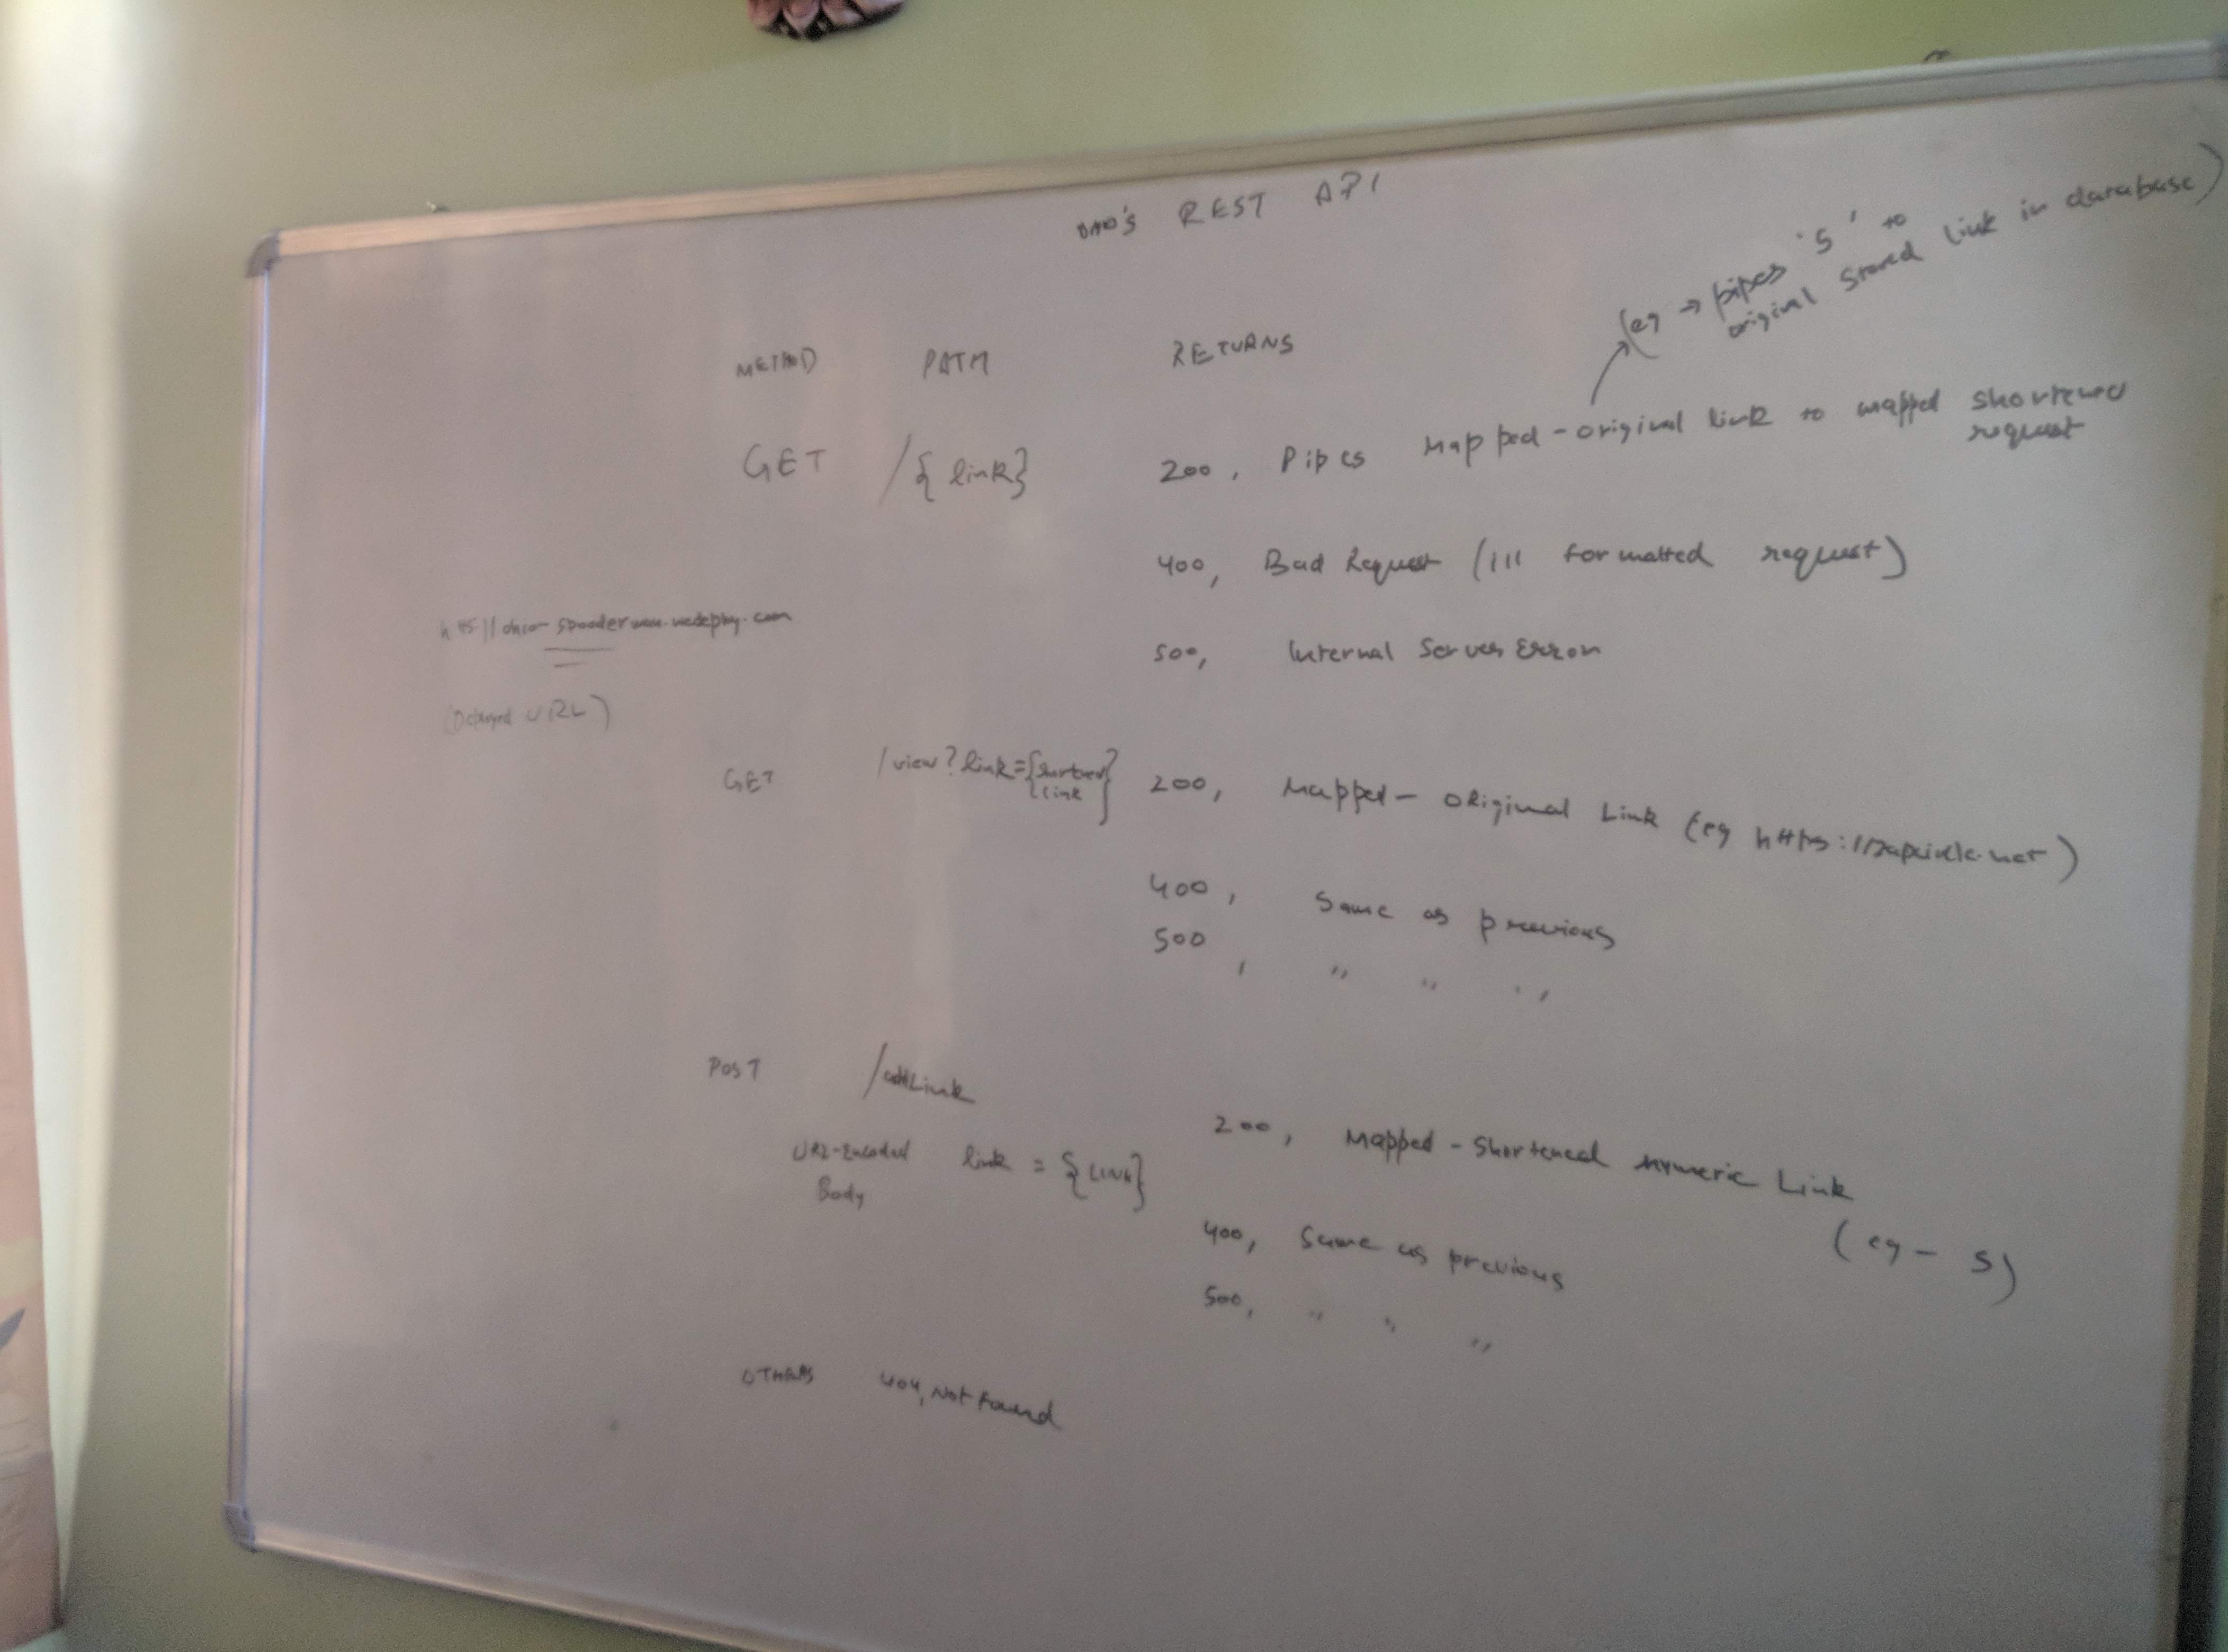 REST API
METHOD PATH RETURNS
(eg → pipes '5' to
original stored link in database)
GET /{link} 200, Pipes Mapped-original link to mapped shortened
request
400, Bad Request (ill formatted request)
500, Internal Server Error
(Deployed URL)
GET /view?link={shortened
link} 200, Mapped- Original Link (eg
400, Same as previous
500, " " "
POST /addLink
200, Mapped-Shortened numeric Link
(eg - 5)
URL-Encoded link = {LINK}
Body
400, Same as previous
500, " " "
OTHERS 404, Not Found